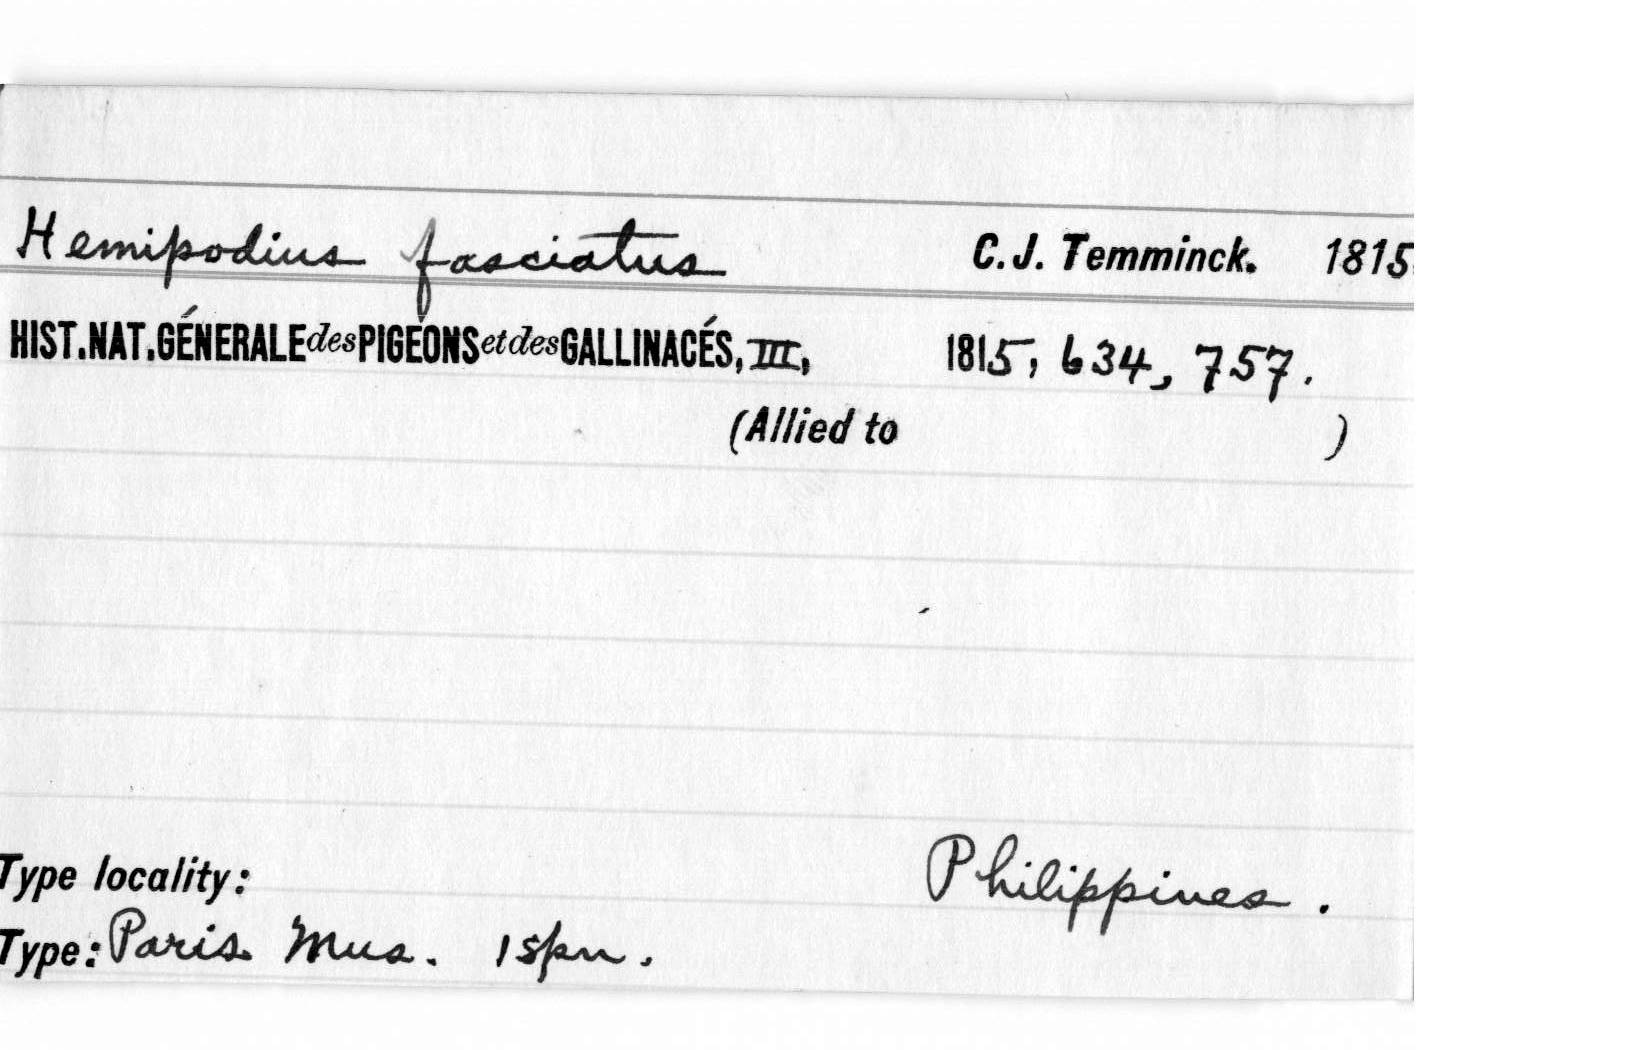 Hemipodius fasciatus C.J. Temminck. 1815
HIST.NAT.GÉNERALE des PIGEONS et des GALLINACÉS, III, 1815, 634, 757.
(Allied to )
Type locality: Philippines.
Type: Paris Mus. 1 spn.